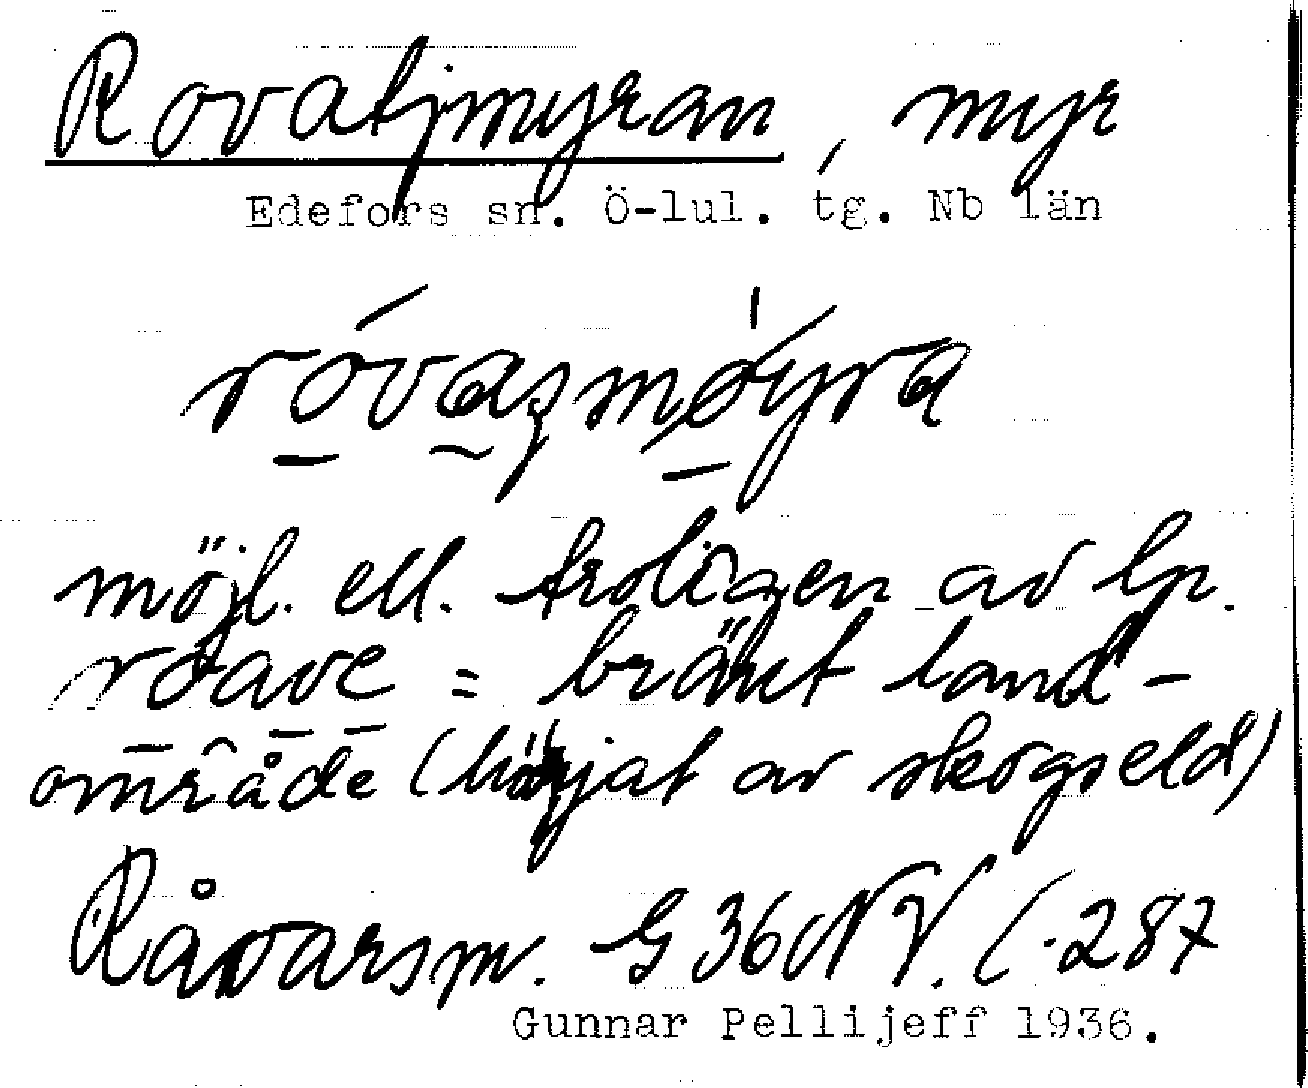 Rovatjmyran, myr
Edefors sn. Ö-lul. tg. Nb län
möjl. ell. troligen av lp.
roavē = bränt land-
område (härjat av skogseld)
Råvarsm. G 36 NV. (.287
Gunnar Pellijeff 1936.